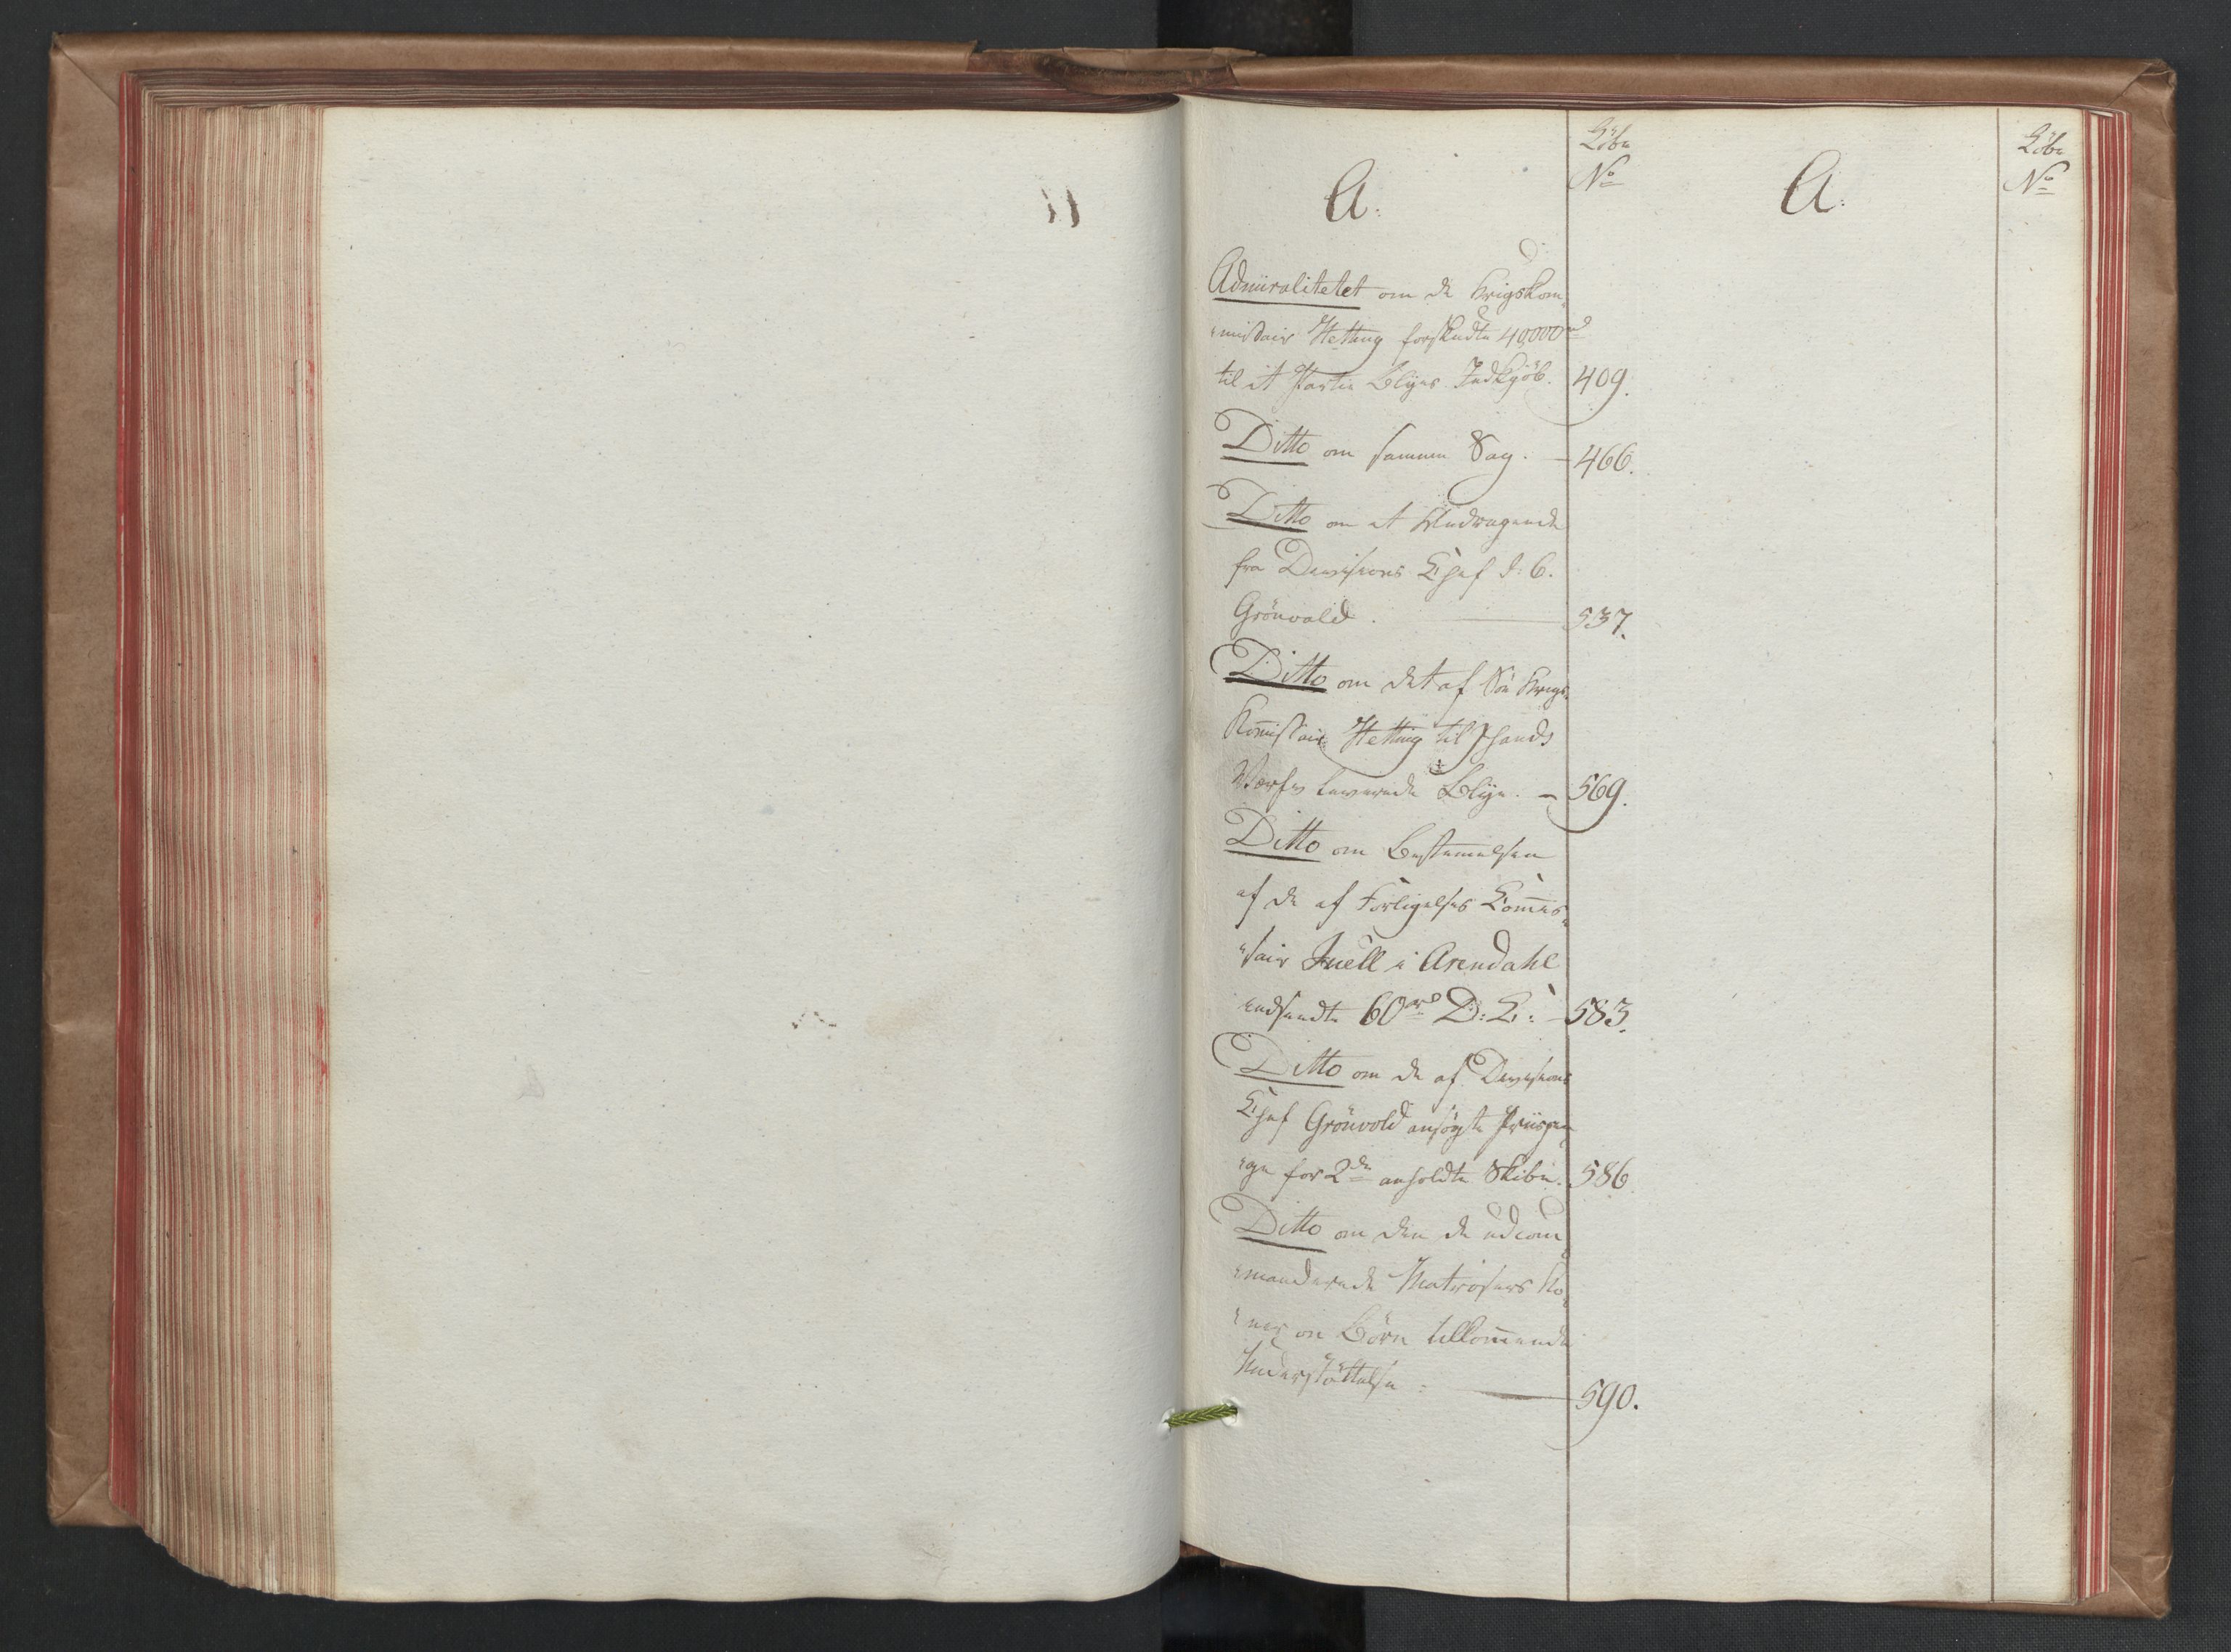 Löbe
No
A.
A.
Löbe
No
Admiralitetet om de Krigskom-
missair Hetting forskudte 40,000 rd
til et Partie Blyes Indkjöb. 409.
Ditto om samme Sag. 466.
Ditto om et Andragende
fra Devisions Chef d: C.
Grönvald. 537.
Ditto om det af Söe Krigs-
Kom̅issair Hetting til Ihands
Værfs leverede Blye. 569.
Ditto om Bestem̅elsen
af de af Forligelses Com̅is-
sair Juell i Arendahl
indsendte 60 rd D: C: 583.
Ditto om de af Devisions
Chef Grönvold ansögte Priispen-
ge for 2de anholdte Skibe. 586
Ditto om den de udcom-
manderede Matrosers Ko-
ner og Börn tilkom̅ende
Understöttelse: 590.